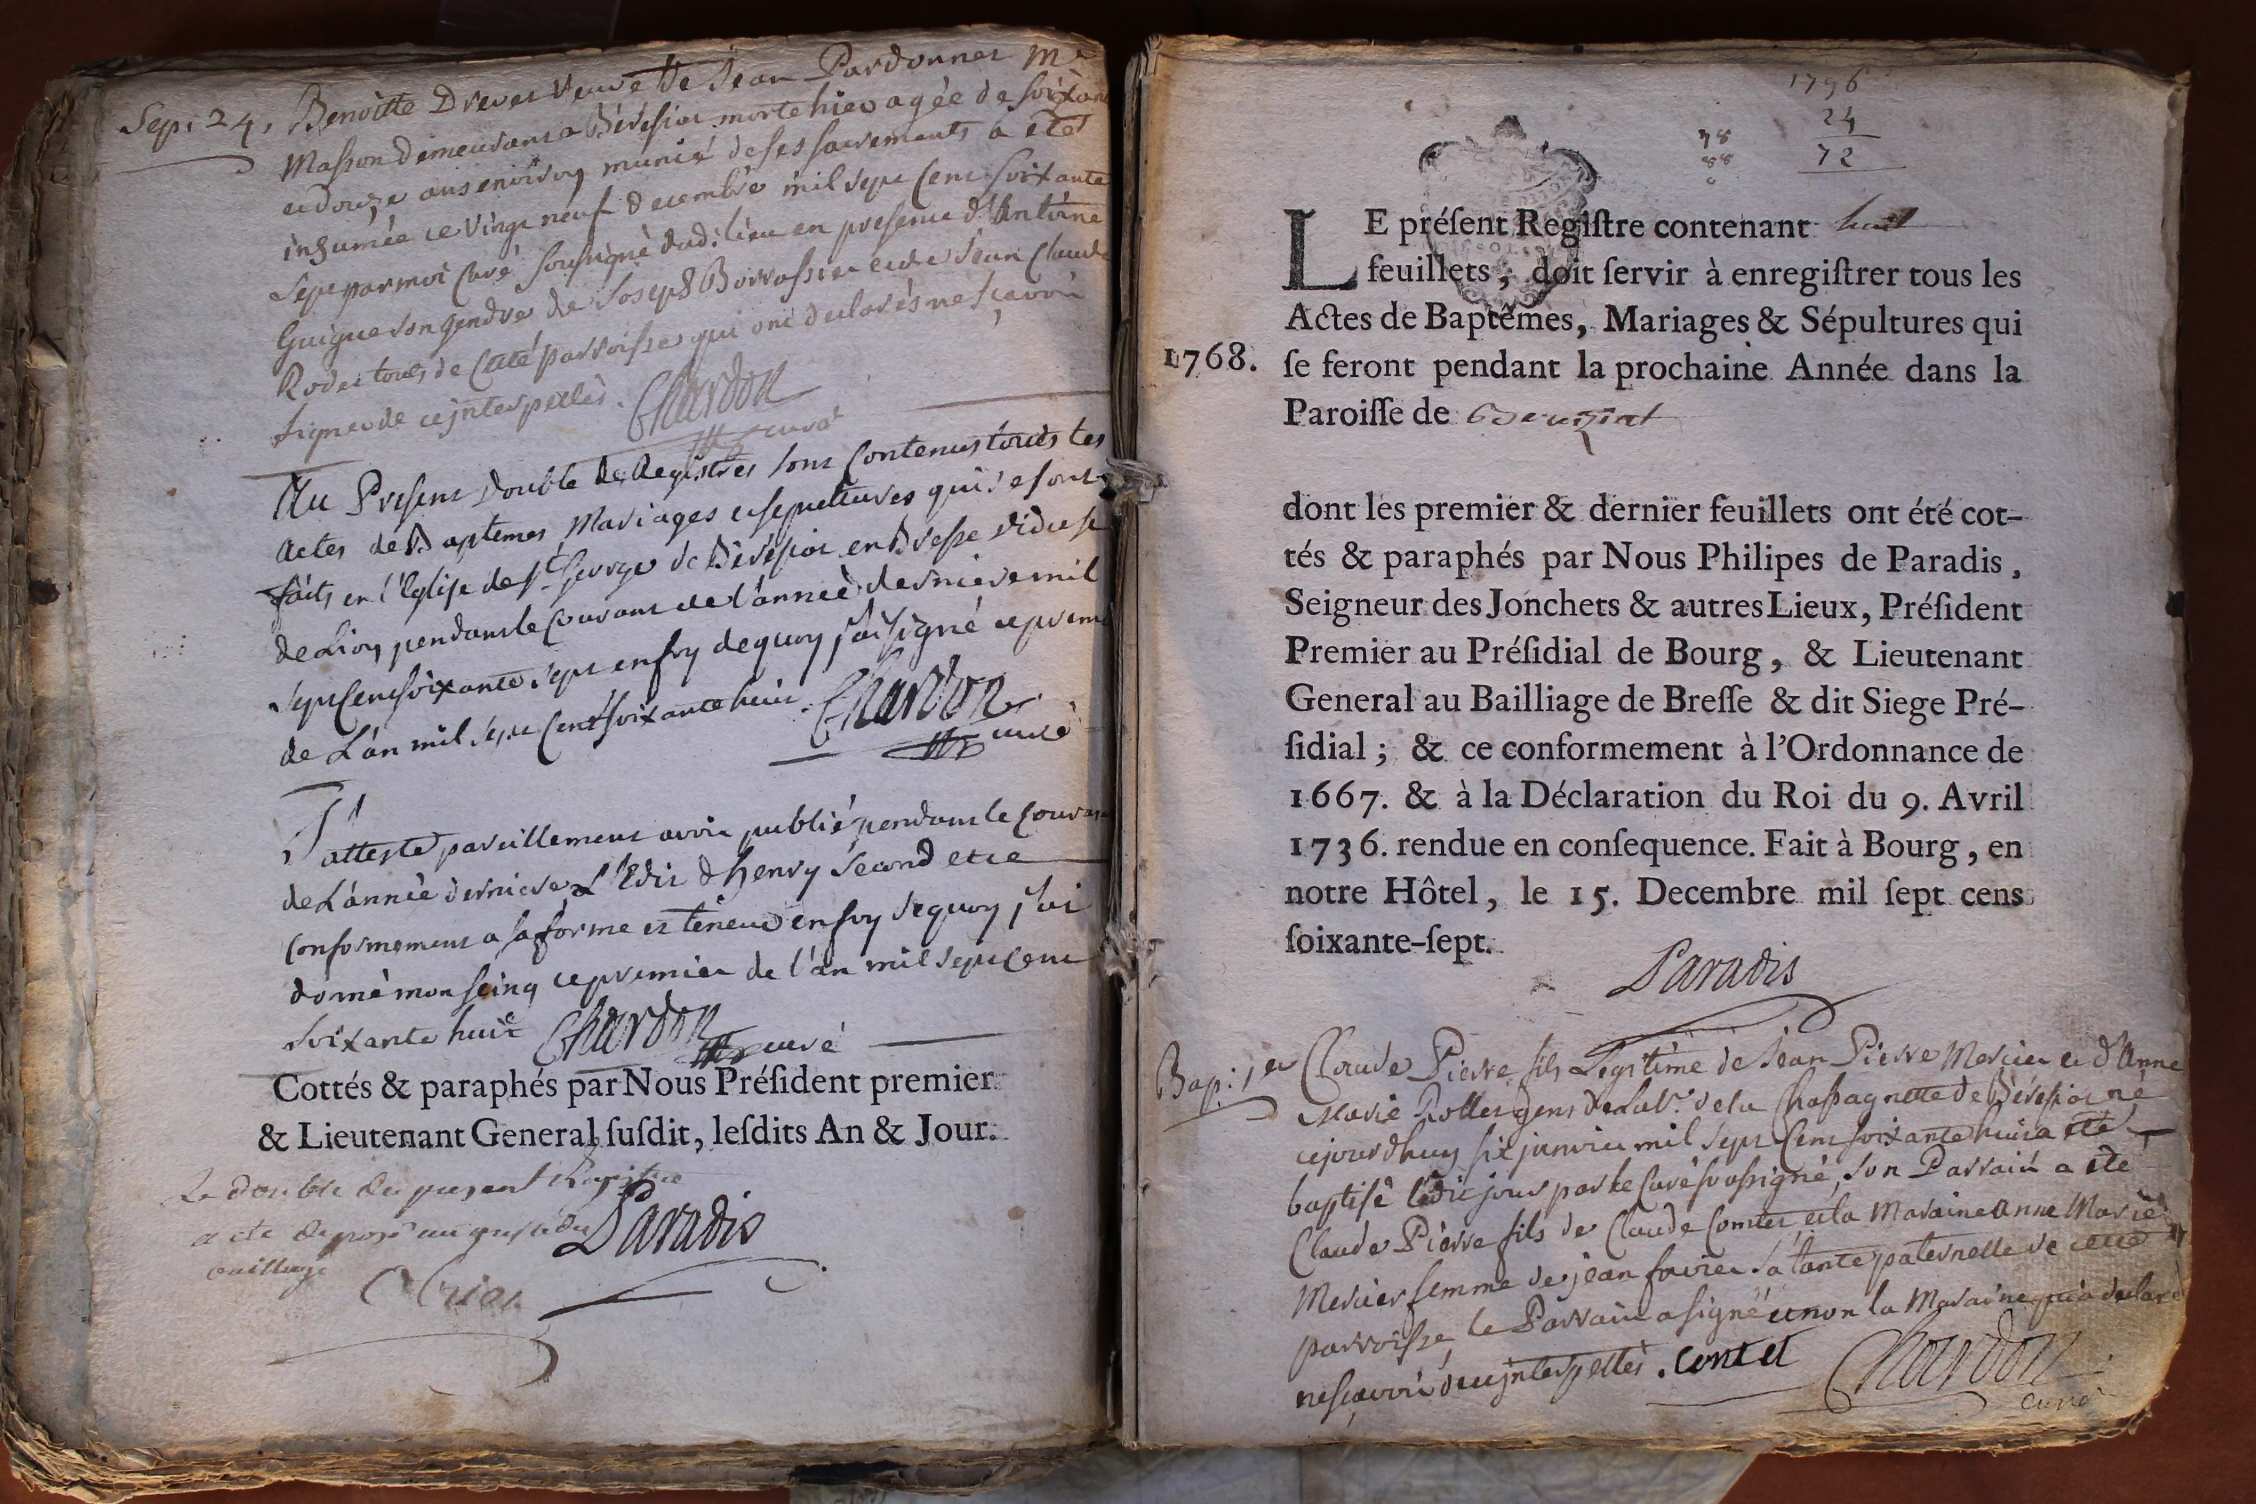 Sep: 24. Benoitte Drevet veuve de Jean Pardonner Me
Masson demeurant a Béréziat morte hier agée de soixante
et douze ans environ munie de ses sacrements a eté
inhumée ce vingt neuf decembre mil sept cent soixante
sept par moi curé soussigné dud: lieu en presence d'Antoine
Guigue son gendre de Joseph Borrassier et de Jean Claude
Rodet tous de cette parroisse qui ont declarés ne sçavoir
signer de ce interpellés. Chardon
curé
Au Present double de Registres sont contenus touts les
actes de Baptemes, Mariages et sepultures qui se sont
faits en l'Eglise de St George de Béréziat en Bresse diocese
de Lion pendant le courant de l'année derniere mil
sept cent soixante sept en foy de quoy j'ai signé ce premier
de L'an mil sept cent soixante huit. Chardon
curé
J'atteste pareillement avoir publié pendant le courant
de L'année derniere L'Edit d'henry second et ce
conformement a sa forme et teneur en foy de quoy j'ai
donné mon seing ce premier de l'an mil sept cent
soixante huit Chardon
curé
Cottés & paraphés par Nous Préſident premier
& Lieutenant General ſuſdit, leſdits An & Jour.
Le double du present Registre
a ete deposé au greffe du
bailliage
Paradis
1796
24
72
48
88
LE préſent Regiſtre contenant huit
feuillets, doit ſervir à enregiſtrer tous les
Actes de Baptêmes, Mariages & Sépultures qui
1768. ſe feront pendant la prochaine Année dans la
Paroiſſe de Bereziat
dont les premier & dernier feuillets ont été cot-
tés & paraphés par Nous Philipes de Paradis,
Seigneur des Jonchets & autres Lieux, Préſident
Premier au Préſidial de Bourg, & Lieutenant
General au Bailliage de Breſſe & dit Siege Pré-
ſidial ; & ce conformement à l'Ordonnance de
1667. & à la Déclaration du Roi du 9. Avril
1736. rendue en conſequence. Fait à Bourg, en
notre Hôtel, le 15. Decembre mil ſept cens
ſoixante-ſept.
Paradis
Bap: 1er Claude Pierre fils Legitime de Jean Pierre Mercier et d'Anne
Marie Rollet gens de Labr. de la Chapagnette de Béréziat né
cejourdhuy six janvier mil sept cent soixante huit a eté
baptisé ledit jour par le curé soussigné, son Parrain a eté
Claude Pierre fils de Claude Comtet et la Maraine Anne Marie
Mercier femme de jean favier sa tante paternelle de cette
parroisse, le Parrain a signé et non la Maraine qui a declaré
ne sçavoir de ce interpellés. contet Chardon
curé